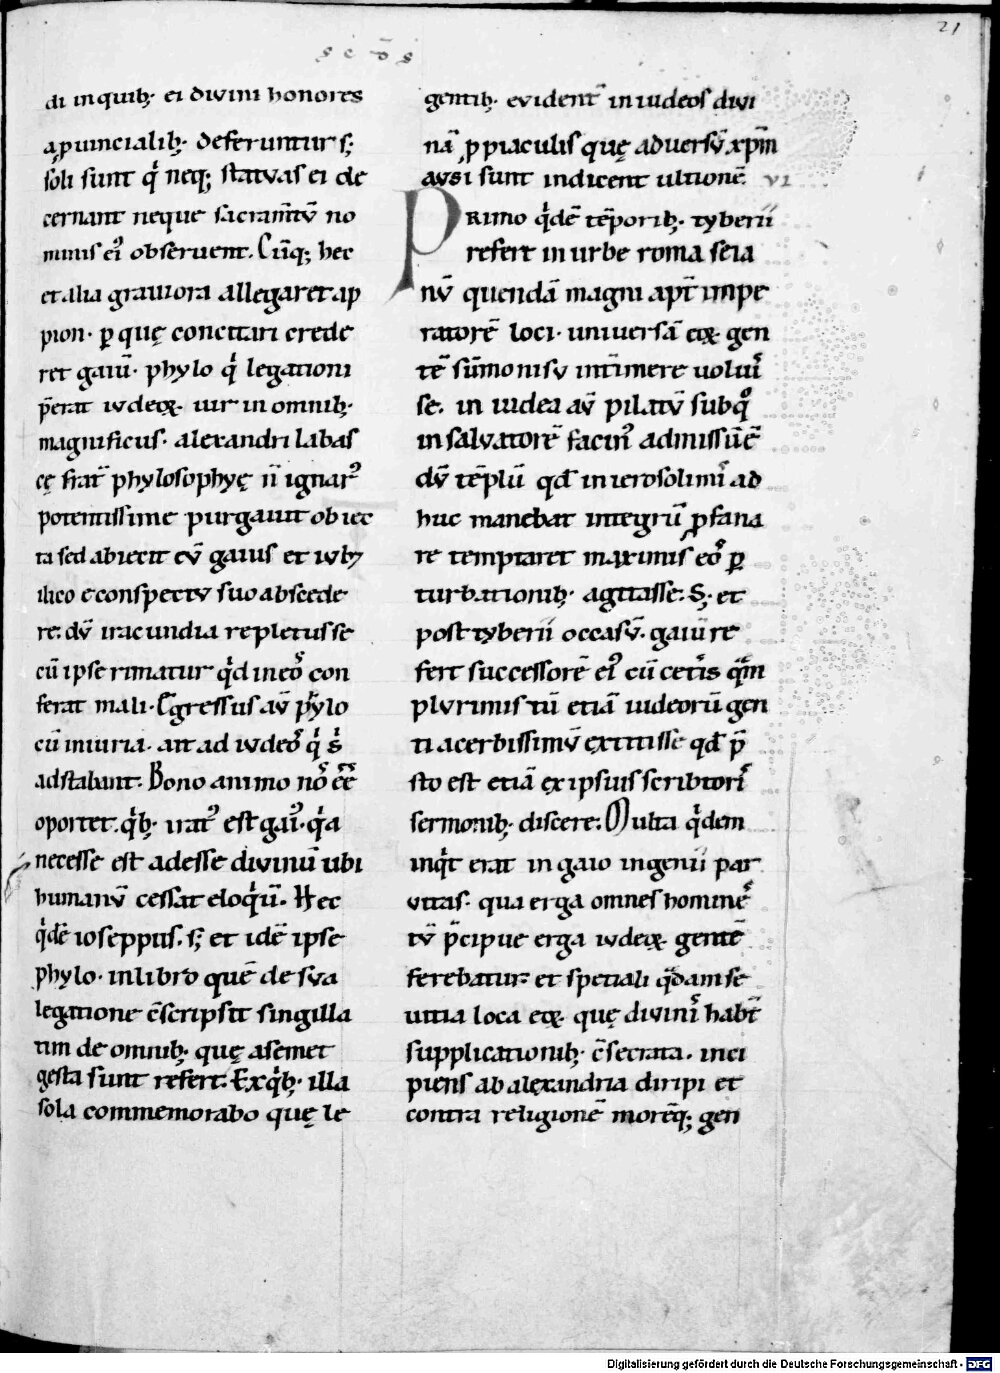 21
s c o̅ s
di inquib; ei divini honores
a ꝓuincialib; deferuntur s;
soli sunt qͥ neq; statvas ei de
cernant neque sacram̅tv̅ no
minis ei᾿ observent. Cu̅q; hec
et alia graviora allegaret ap
pion. ꝑ quę concitari crede
ret gaiu̅. phylo qͥ legationi
p̅erat iudeoꝝ. uir in omnib;
magnificus. alexandri labas
cę frat̅ phylosophyę n̅ ignar᾿
potentissime purgauit obiec
ta sed abiecit ev̅ gaius et iub&
ilico e conspectv suo abscede
re: dv̅ iracundia repletus se
cu̅ ipse rimatur qͥd in eoˢ con
ferat mali. Egressus av̅ phylo
cu̅ iniuria. ait ad iudeoˢ qͥ sͥ
adstabant. Bono animo noˢ ee̅
oportet. qͥb; irat᾿ est gai᾿. qͥa
necesse est adesse divinu̅ ubi
humanv̅ cessat eloqͥu̅. Hec
qͥde̅ ioseppus. s; et ide̅ ipse
phylo. in libro que̅ de sva
legatione c̅scripsit singilla
tim de omnib; quę a semet
gesta sunt refert. Ex qͥb; illa
sola commemorabo quę le
gentib; evident̅ in iudeos divi
na̅ ꝓ piaculis quę adversv̅ xp̅m
avsi sunt indicent ultione̅. VI
Primo qͥde̅ te̅porib; tyberii
refert in urbe roma seia
nv̅ quenda̅ magni apt̅ impe
ratore̅ loci. universa̅ eoꝝ gen
te̅ su̅mo nisv int̅imere volui
se. in iudea av̅ pilatv̅ sub qͦ
in salvatore̅ facin᾿ admissu̅ e̅
dv̅ te̅plu̅ qd̅ in ierosolimiˢ ad
huc manebat integru̅ ꝓfana
re temptaret maximis eoˢ ꝑ
turbationib; agitasse. S; et
post tyberii occasv̅. gaiu̅ re
fert successore̅ ei᾿ cu̅ cet̅is qͣm
plvrimis tu̅ etia̅ iudeoru̅ gen
ti acerbissimv̅ extitisse qd̅ p̅
sto est etia̅ ex ipsius scribtoriˢ
sermonib; discere. Multa qͥdem
inqͥt erat in gaio ingenii par
vitas. qua erga omnes homineˢ
tv̅ p̅cipue erga iudeoꝝ gente̅
ferebatur. et spetiali qͣdam se
vitia loca eoꝝ quę diviniˢ habt̅
supplicationib; c̅secrata. inci
piens ab alexandria diripi et
contra religione̅ more̅q; gen
Digitalisierung gefördert durch die Deutsche Forschungsgemeinschaft - DFG